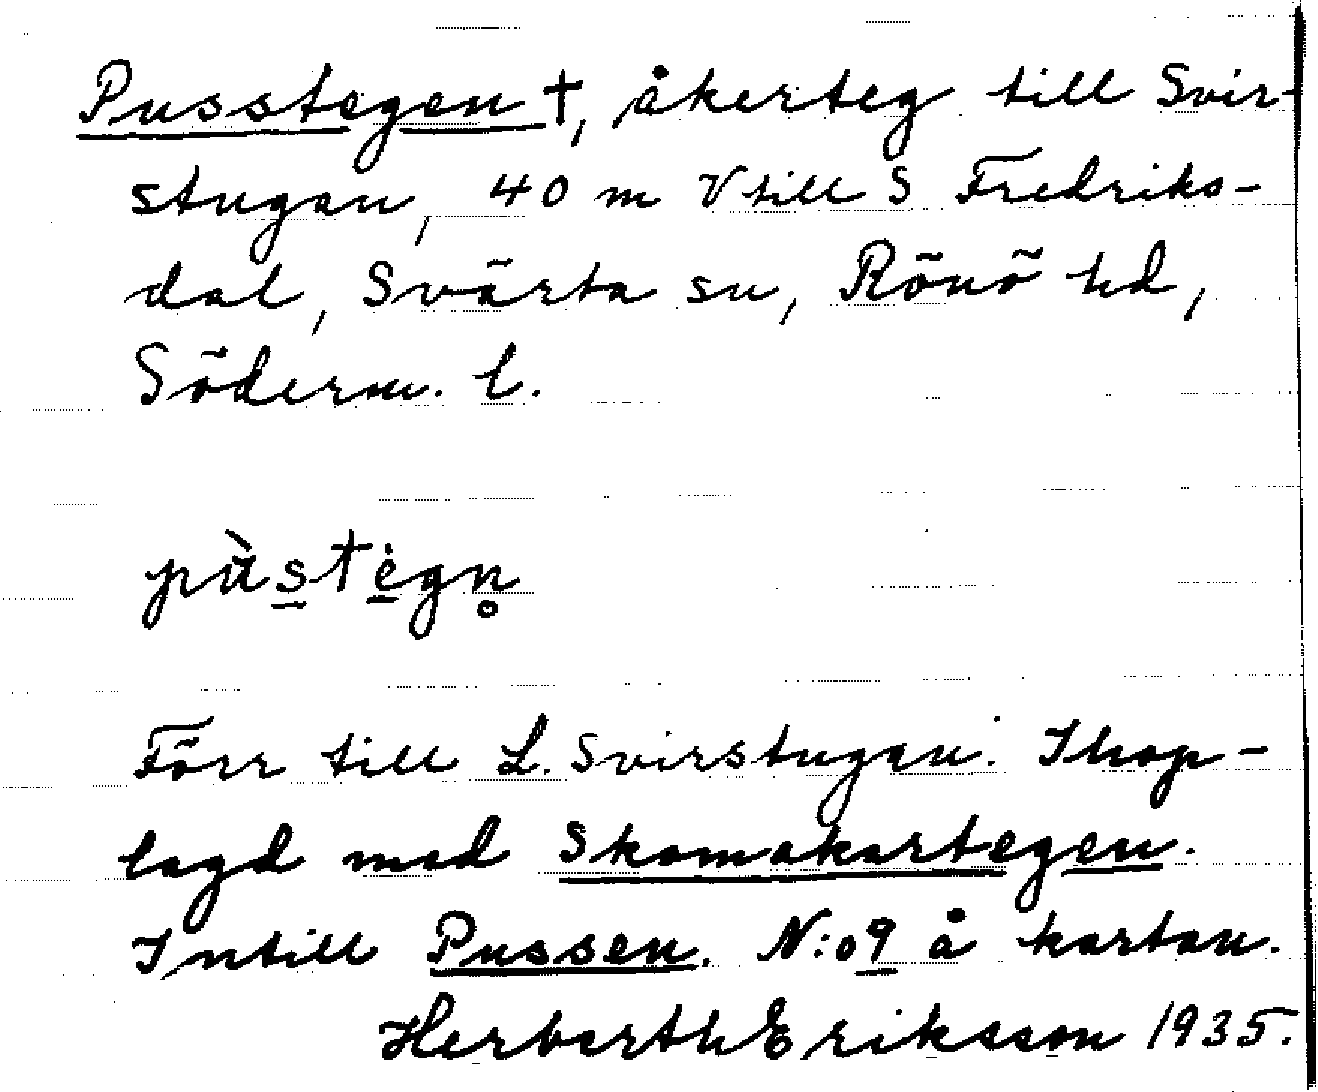 Pusstegen †, åkerteg till Svir-
stugan, 40 m V till S Fredriks-
dal, Svärta sn, Rönö hd,
Söderm. l.
pàstėgn̥
Förr till L. Svirstugan. Ihop-
lagd med Skomakartegen.
Intill Pussen. N:o 9 å kartan.
Herbert Eriksson 1935.